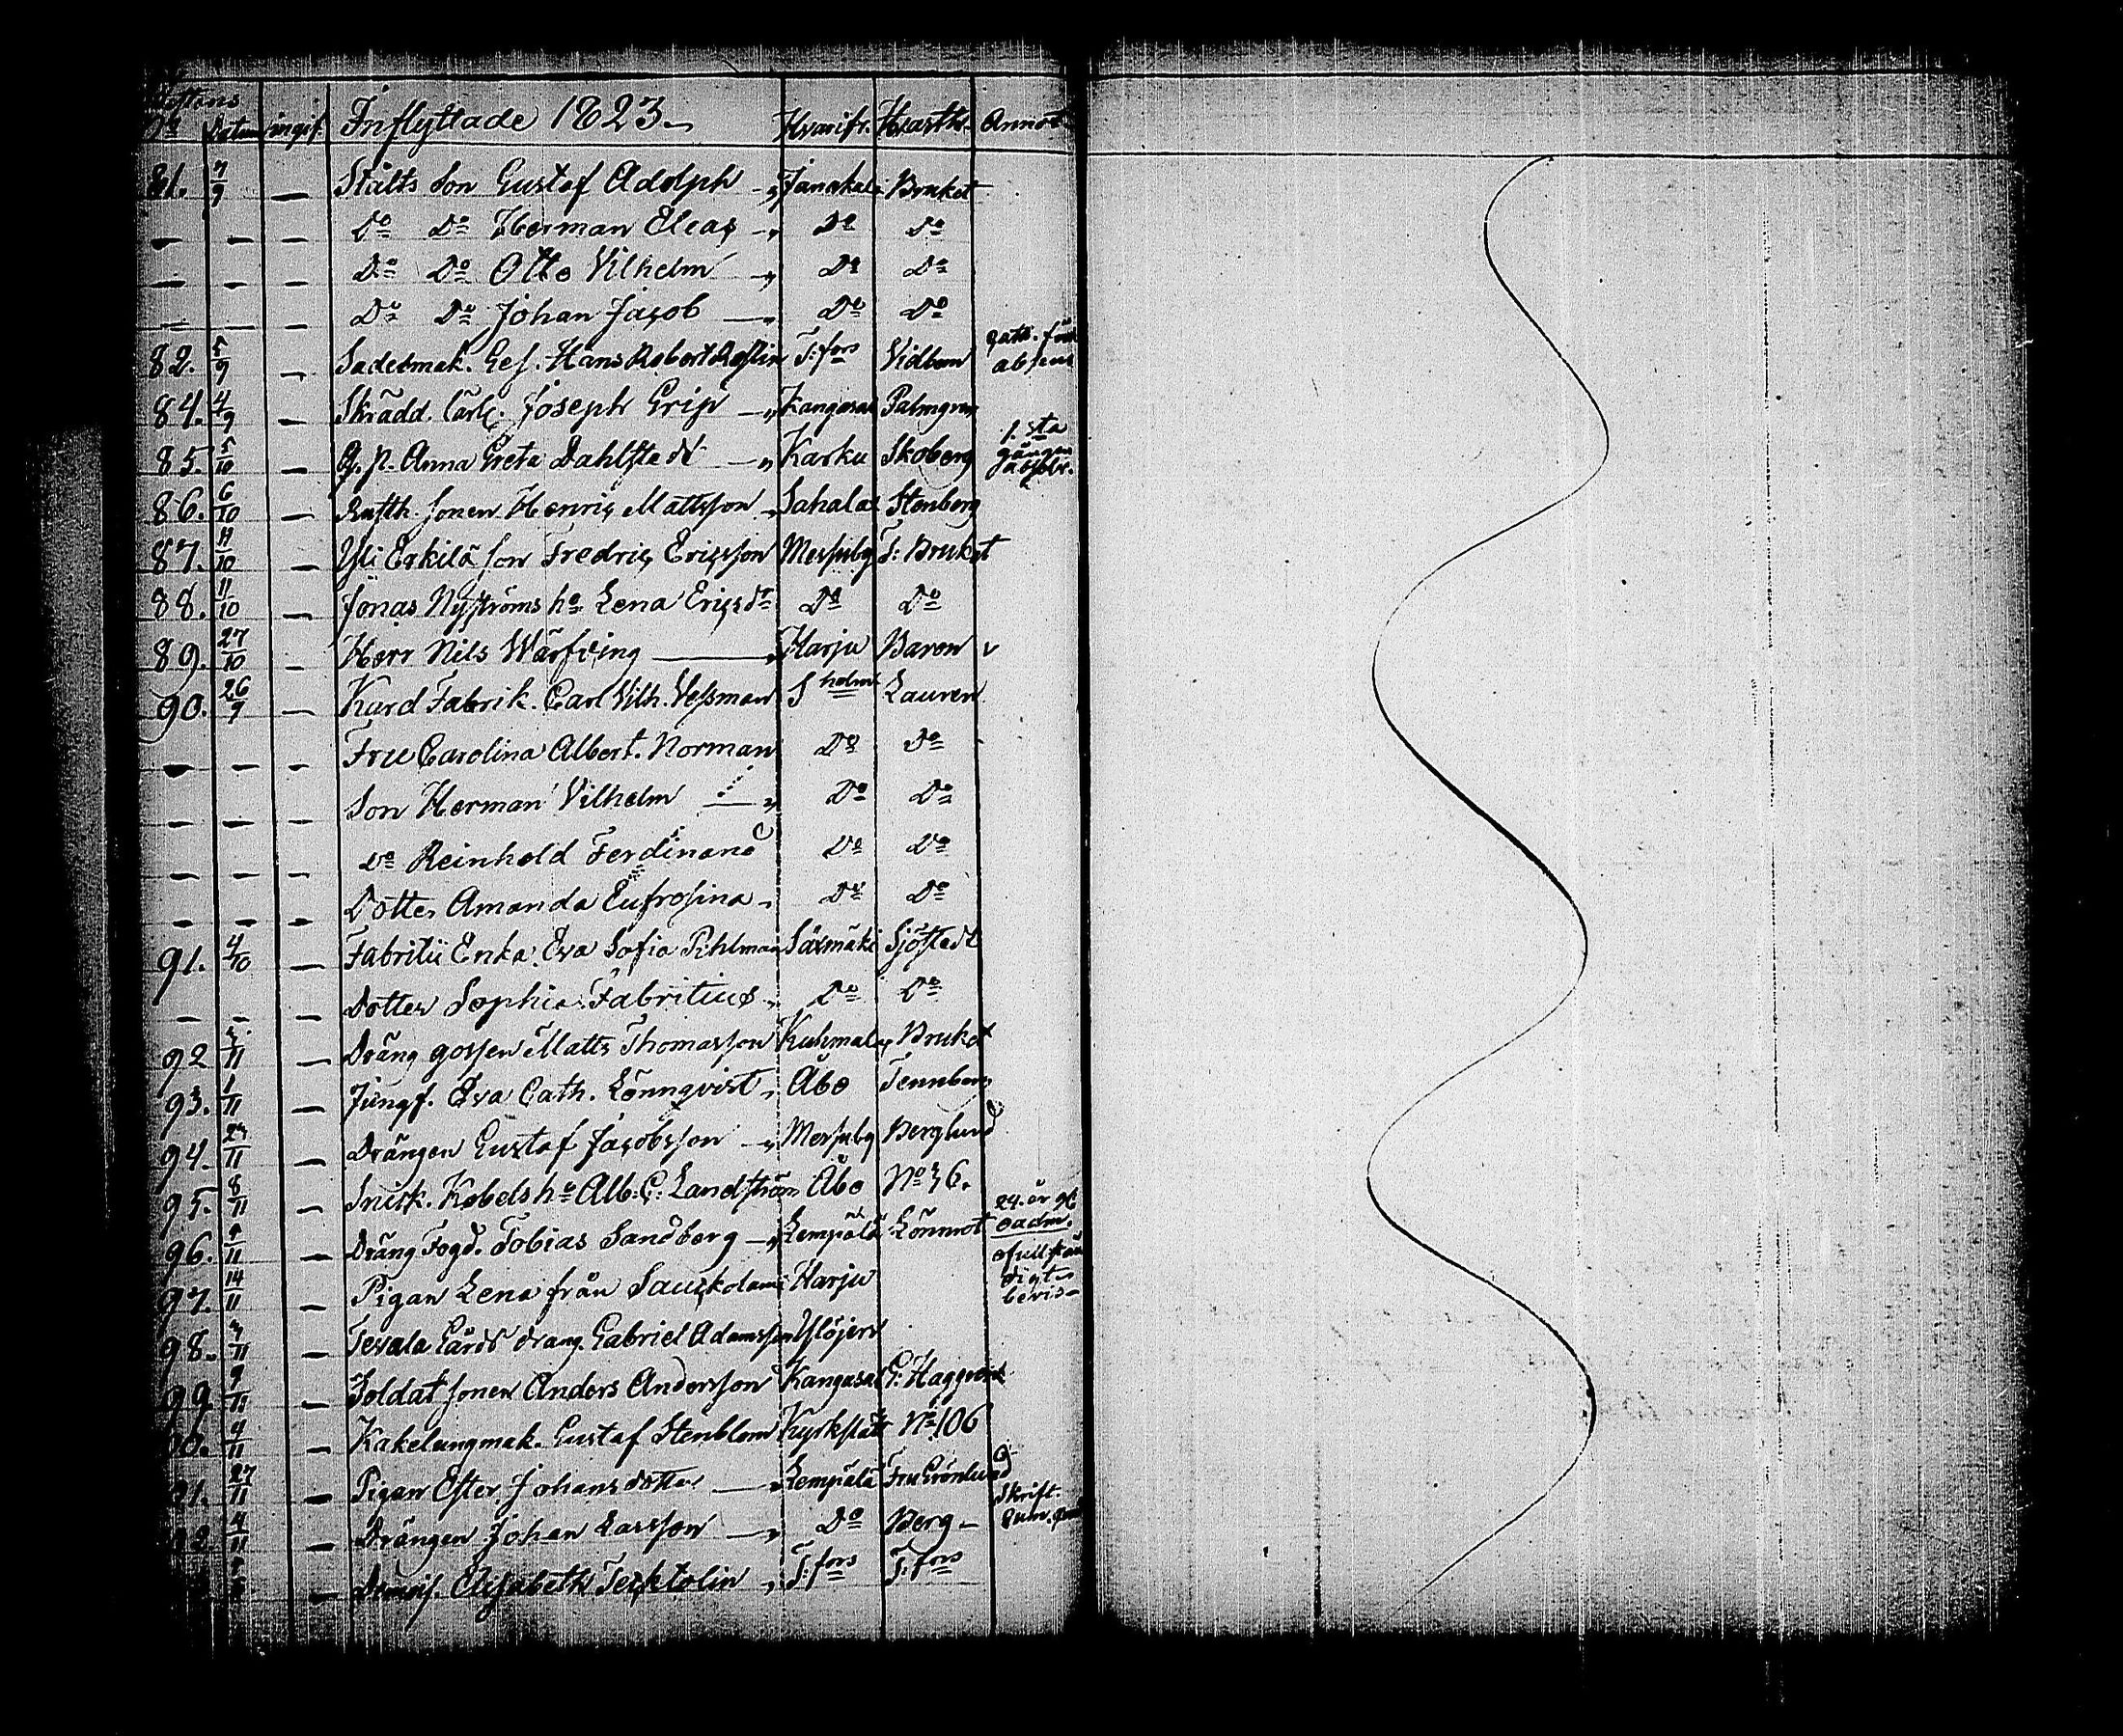 Attens
No Datum ingif. Inflyttade 1823. Hvarifr. Hvarth. Annot
81. 7/9 — Stålts Son Gustaf Adolph Janakala Bruket
— — — Do Do Herman Elias Do Do
— — — Do Do Otto Vilhelm Do Do
— — — Do Do Johan Jacob Do Do
82. 5/9 — Sadelmak. Ges. Hans Robert Roslin T:fors Vidbom absens
84. 4/9 — Skrädd. Lärl. Joseph Grip Kangasal Palmgren
85. 5/10 — Q. p. Anna Greta Dahlstedt Karku Skoberg 1. sta gången absolv.
86. 6/10 — Rusth. sonen Henric Mattsson Sahalax Stenberg
87. 11/10 — Yli Erkilä son Fredric Ericsson Messuby T: Bruket
88. 11/10 — Jonas Nyströms ho Lena Ericsdr Do Do
89. 27/10 — Herr Nils Wärfving Harju Baron v
90. 26/9 — Kard Fabrik. Carl Vilh. Vessman S holm Lauren
— — — Fru Carolina Albert. Norman Do Do
— — — Son Herman Vilhelm Do Do
— — — Do Reinhold Ferdinand Do Do
— — — Dotter Amanda Eufrosina Do Do
91. 4/10 — Fabritii Enka Eva Sofia Pihlman Säxmäki Sjöstedt
— — — Dotter Sophia Fabritius Do Do
92 /11 — Dräng gossen Matts Thomasson Kuhmalax Bruket
93. 1/11 — Jungf. Eva Cath. Lönnqvist Åbo Tennberg
94. 23/11 — Drängen Gustaf Jacobsson Messuby Berglund
95. 8/11 — Snick. Kobels ho Alb: C: Landström Åbo No 36.
96. 9/11 — Dräng Fogd. Tobias Sandberg Lempälä Lönnrot 24. år gl oadm.
97. 14/11 — Pigan Lena från Sauckola Harju ofullstän digt bevis
98. 3/11 — Tesvala Gårds dräng. Gabriel Adamsson Ylöjerv
99. 9/11 — Soldat sonen Anders Andersson Kangasal G: Haggqvist
00. 4/11 — Kakelungmak. Gustaf Stenblom Kyrkslätt No 106
01. 27/11 — Pigan Ester Johansdotter Lempälä Fru Grönlund
02. 4/11 — Drängen Johan Larsson Do Berg Skrift.
— Elisabeth Tecktolin T:fors T:fors